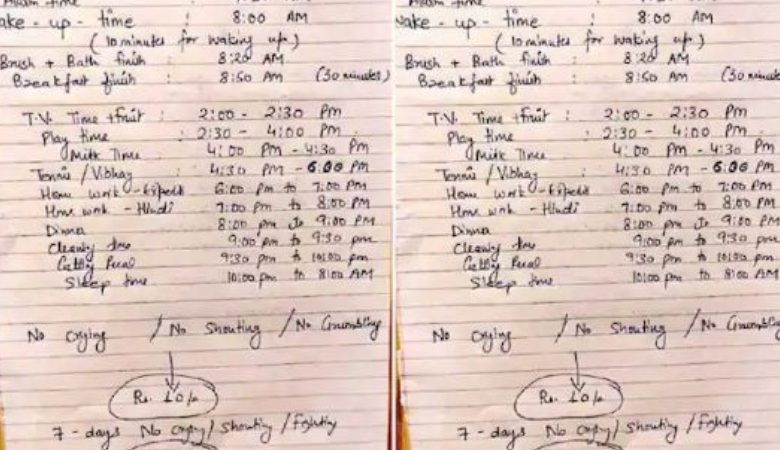 Wake - up - time : 8:00 AM
(10 minutes for waking up)
Brush + Bath finish : 8:20 AM
Breakfast finish : 8:50 AM (30 minutes)
T.V. Time + Fruit : 2:00 - 2:30 Pm
Play time : 2:30 - 4:00 Pm
Milk Time : 4:00 Pm - 4:30 Pm
Tennis / Vibhav : 4:30 Pm - 6:00 Pm
Home work - 6:00 Pm to 7:00 Pm
Home work - Hindi 7:00 Pm to 8:00 Pm
Dinner 8:00 pm to 9:00 Pm
Cleaning time 9:00 pm to 9:30 pm
9:30 pm to 10:00 pm
Sleep time 10:00 pm to 8:00 AM
No Crying / No Shouting / No Grumbling
Rs. 10/-
7 - days No crying / Shouting / fighting
Wake - up - time : 8:00 AM
(10 minutes for waking up)
Brush + Bath finish : 8:20 AM
Breakfast finish : 8:50 AM (30 minutes
T.V. Time + Fruit : 2:00 - 2:30 Pm
Play time : 2:30 - 4:00 Pm
Milk Time : 4:00 Pm - 4:30 Pm
Tennis / Vibhav : 4:30 Pm - 6:00 Pm
Home work - 6:00 Pm to 7:00 Pm
Home work - Hindi 7:00 Pm to 8:00 Pm
Dinner 8:00 pm to 9:00 Pm
Cleaning time 9:00 pm to 9:30 pm
9:30 pm to 10:00 pm
Sleep time 10:00 pm to 8:00 AM
No Crying / No Shouting / No Grumbling
Rs. 10/-
7 - days No crying / Shouting / fighting